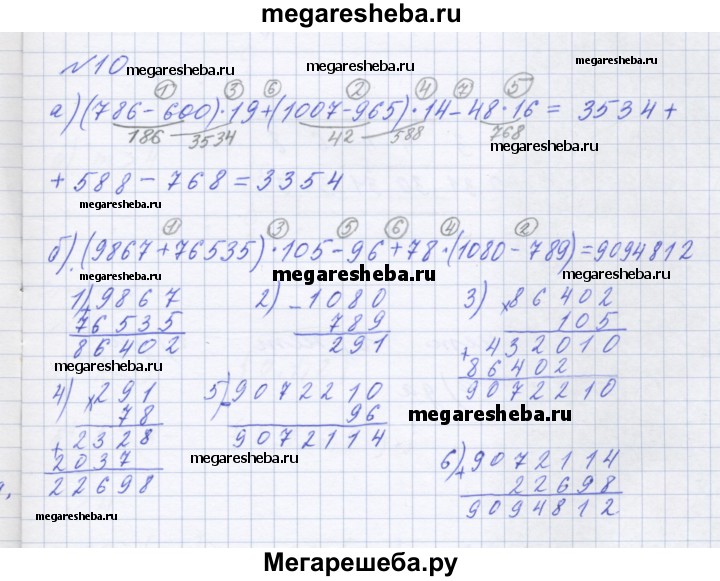 megaresheba.ru
№10
megaresheba.ru
megaresheba.ru
megaresheba.ru
1 3 6 2 4 7 5
а) (786-600)·19+(1007-965)·14-48·16= 3534+
186 3534 42 588 768
megaresheba.ru
+588-768=3354
megaresheba.ru
1 3 5 6 4 2
б) (9867+76535)·105-96+78·(1080-789)=9094812
megaresheba.ru
1) + 9867
76535
86402
2) - 1080
789
291
3) × 86402
105
+ 432010
86402
9072210
megaresheba.ru
4) × 291
78
+ 2328
2037
22698
5) - 9072210
96
9072114
megaresheba.ru
megaresheba.ru
6) + 9072114
22698
9094812
megaresheba.ru
megaresheba.ru
Мегарешеба.ру